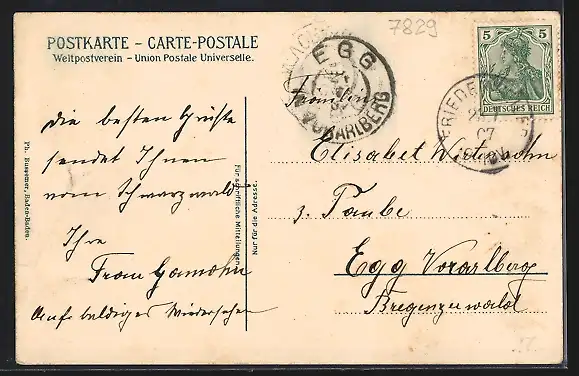 7829
POSTKARTE – CARTE-POSTALE
Weltpostverein – Union Postale Universelle.
EGG
VORARLBERG
5 5
DEUTSCHES REICH
07
Fräulein
Elisabet
z. Taube
Egg Vorarlberg
Bregenzerwald
die besten Grüße
sendet Ihnen
vom Schwarzwald
Ihre
Frau
Auf baldiges Wiedersehen
Für schriftliche Mitteilungen
Nur für die Adresse.
Ph. Bussemer, Baden-Baden.